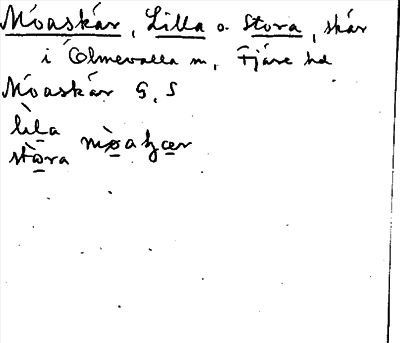 Móaskär, Lilla o. Stora, skär
i Ölmevalla sn, Fjäre hd
Móaskär G, S
lìla
stòra mòaʂær